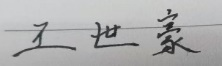 王世豪